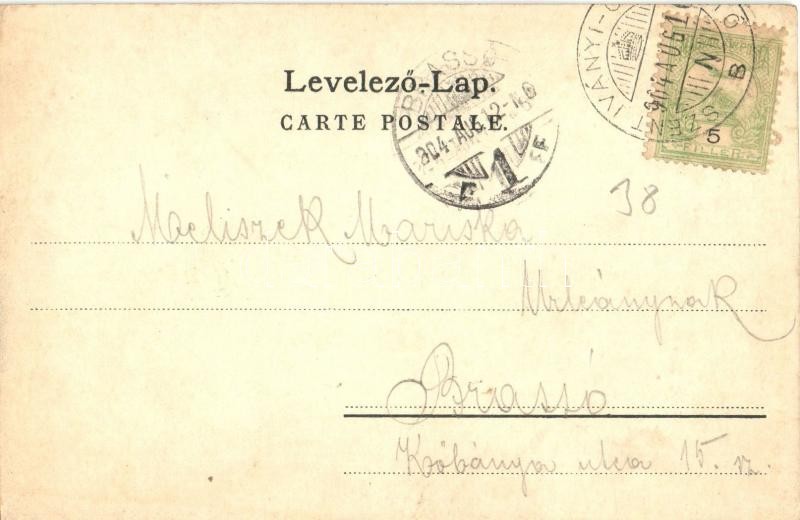 Levelező-Lap.
CARTE POSTALE.
BRASSÓ
904 AUG. 12
1
904 AUG 10
N
B
5
FILLÉR
38
Meliszek Mariska
Urleánynak
Brassó
Kőbánya utca 15. sz.